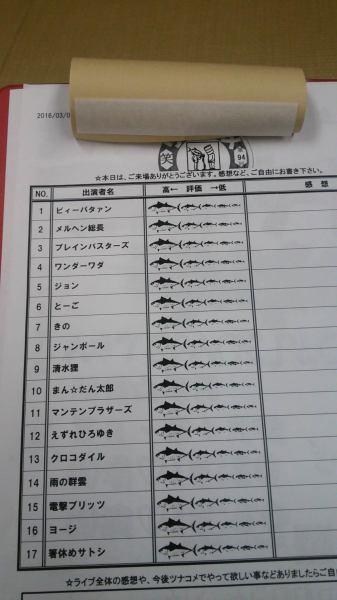 2016/03/0
笑
94
☆本日は、ご来場ありがとうございます。感想など、ご自由にお書き下さい。
NO. 出演者名 高← 評価 →低 感 想
1 ビィーバタァン
2 メルヘン総長
3 ブレインバスターズ
4 ワンダーワダ
5 ジョン
6 とーご
7 きの
8 ジャンボール
9 清水課
10 まん☆だん太郎
11 マンテンブラザーズ
12 えずれひろゆき
13 クロコダイル
14 雨の群雲
15 電撃ブリッツ
16 ヨージ
17 箸休めサトシ
☆ライブ全体の感想や、今後ツナコメでやって欲しい事などありましたらご自